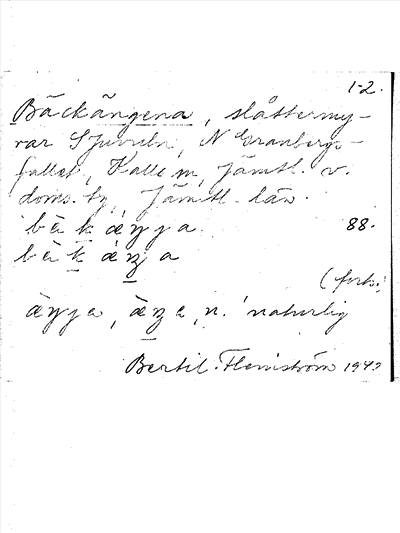 1-2.
Bäckängena, slåttermy-
rar S Juvuln, N Granbergs-
fallet, Kall sn, Jämtl. v.
doms. by, Jämtl. län.
bèkæ̀ŋja 88.
bèkæ̀ŋa
(forts.
æ̀ŋja, æ̀ŋa, n. 'naturlig
Bertil Flemström 1943